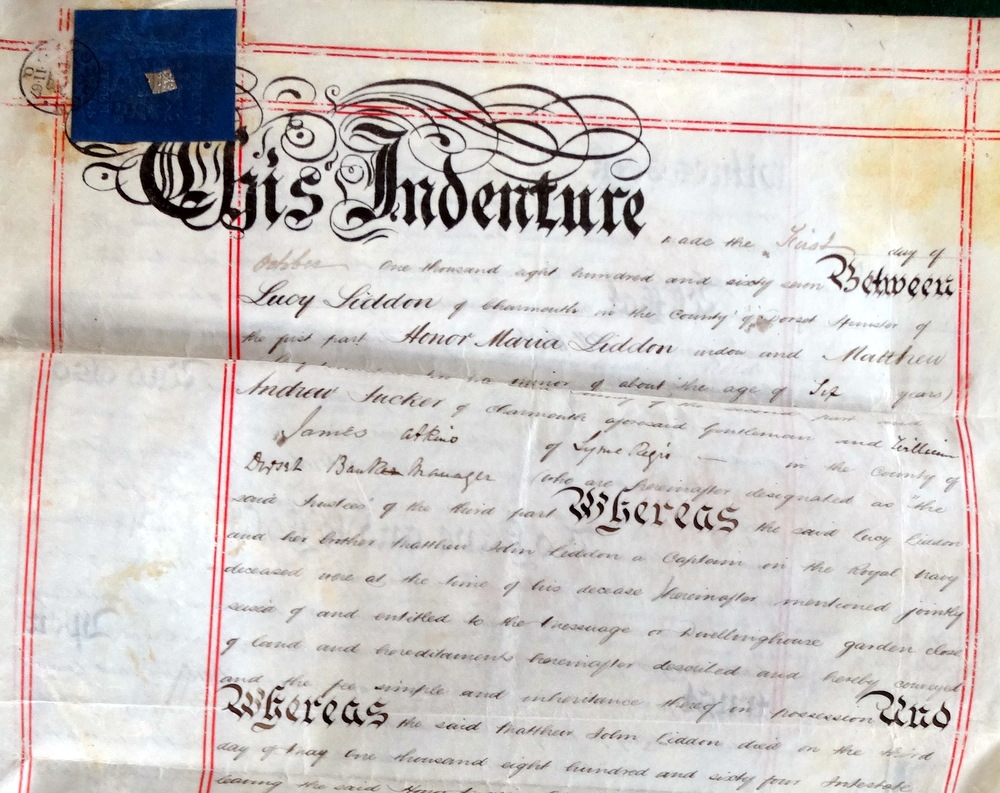 This Indenture made the First day of
October One thousand eight hundred and sixty seven Between
Lucy Liddon of Charmouth in the County of Dorset Spinster of
the first part Honor Maria Liddon widow and Matthew
minor of about the age of Six years)
Andrew Tucker of Charmouth aforesaid Gentleman and William
James Atkins of Lyme Regis — in the County of
Dorset Bank Manager (who are hereinafter designated as "the
said Trustees" of the third part Whereas the said Lucy Liddon
and her brother Matthew John Liddon a Captain in the Royal Navy
deceased were at the time of his decease hereinafter mentioned jointly
seised of and entitled to the Messuage or Dwellinghouse garden close
of land and hereditaments hereinafter described and hereby conveyed
and the fee simple and inheritance thereof in possession And
Whereas the said Matthew John Liddon died on the third
day of May One thousand eight hundred and sixty four Intestate
leaving the said Honor